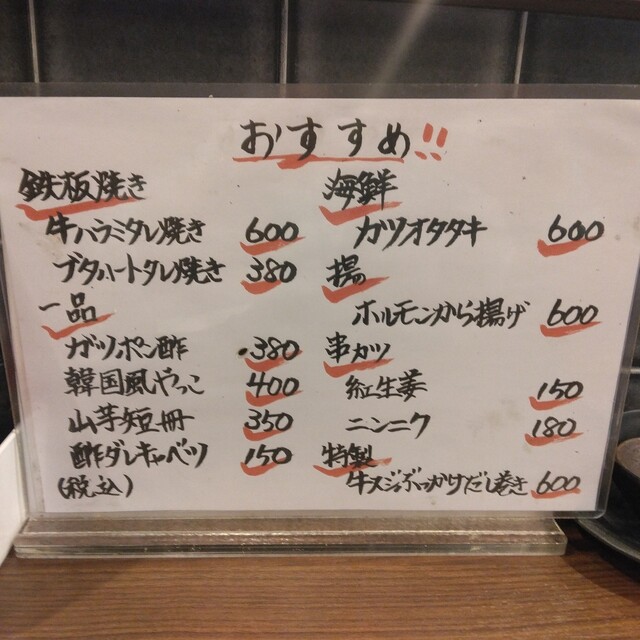 おすすめ!!
鉄板焼き
牛ハラミタレ焼き 600
ブタハートタレ焼き 380
一品
ガツポン酢 380
韓国風やっこ 400
山芋短冊 350
酢ダレキャベツ 150
(税込)
海鮮
カツオタタキ 600
揚
ホルモンから揚げ 600
串カツ
紅生姜 150
ニンニク 180
特製
牛スジぶっかけだし巻き 600